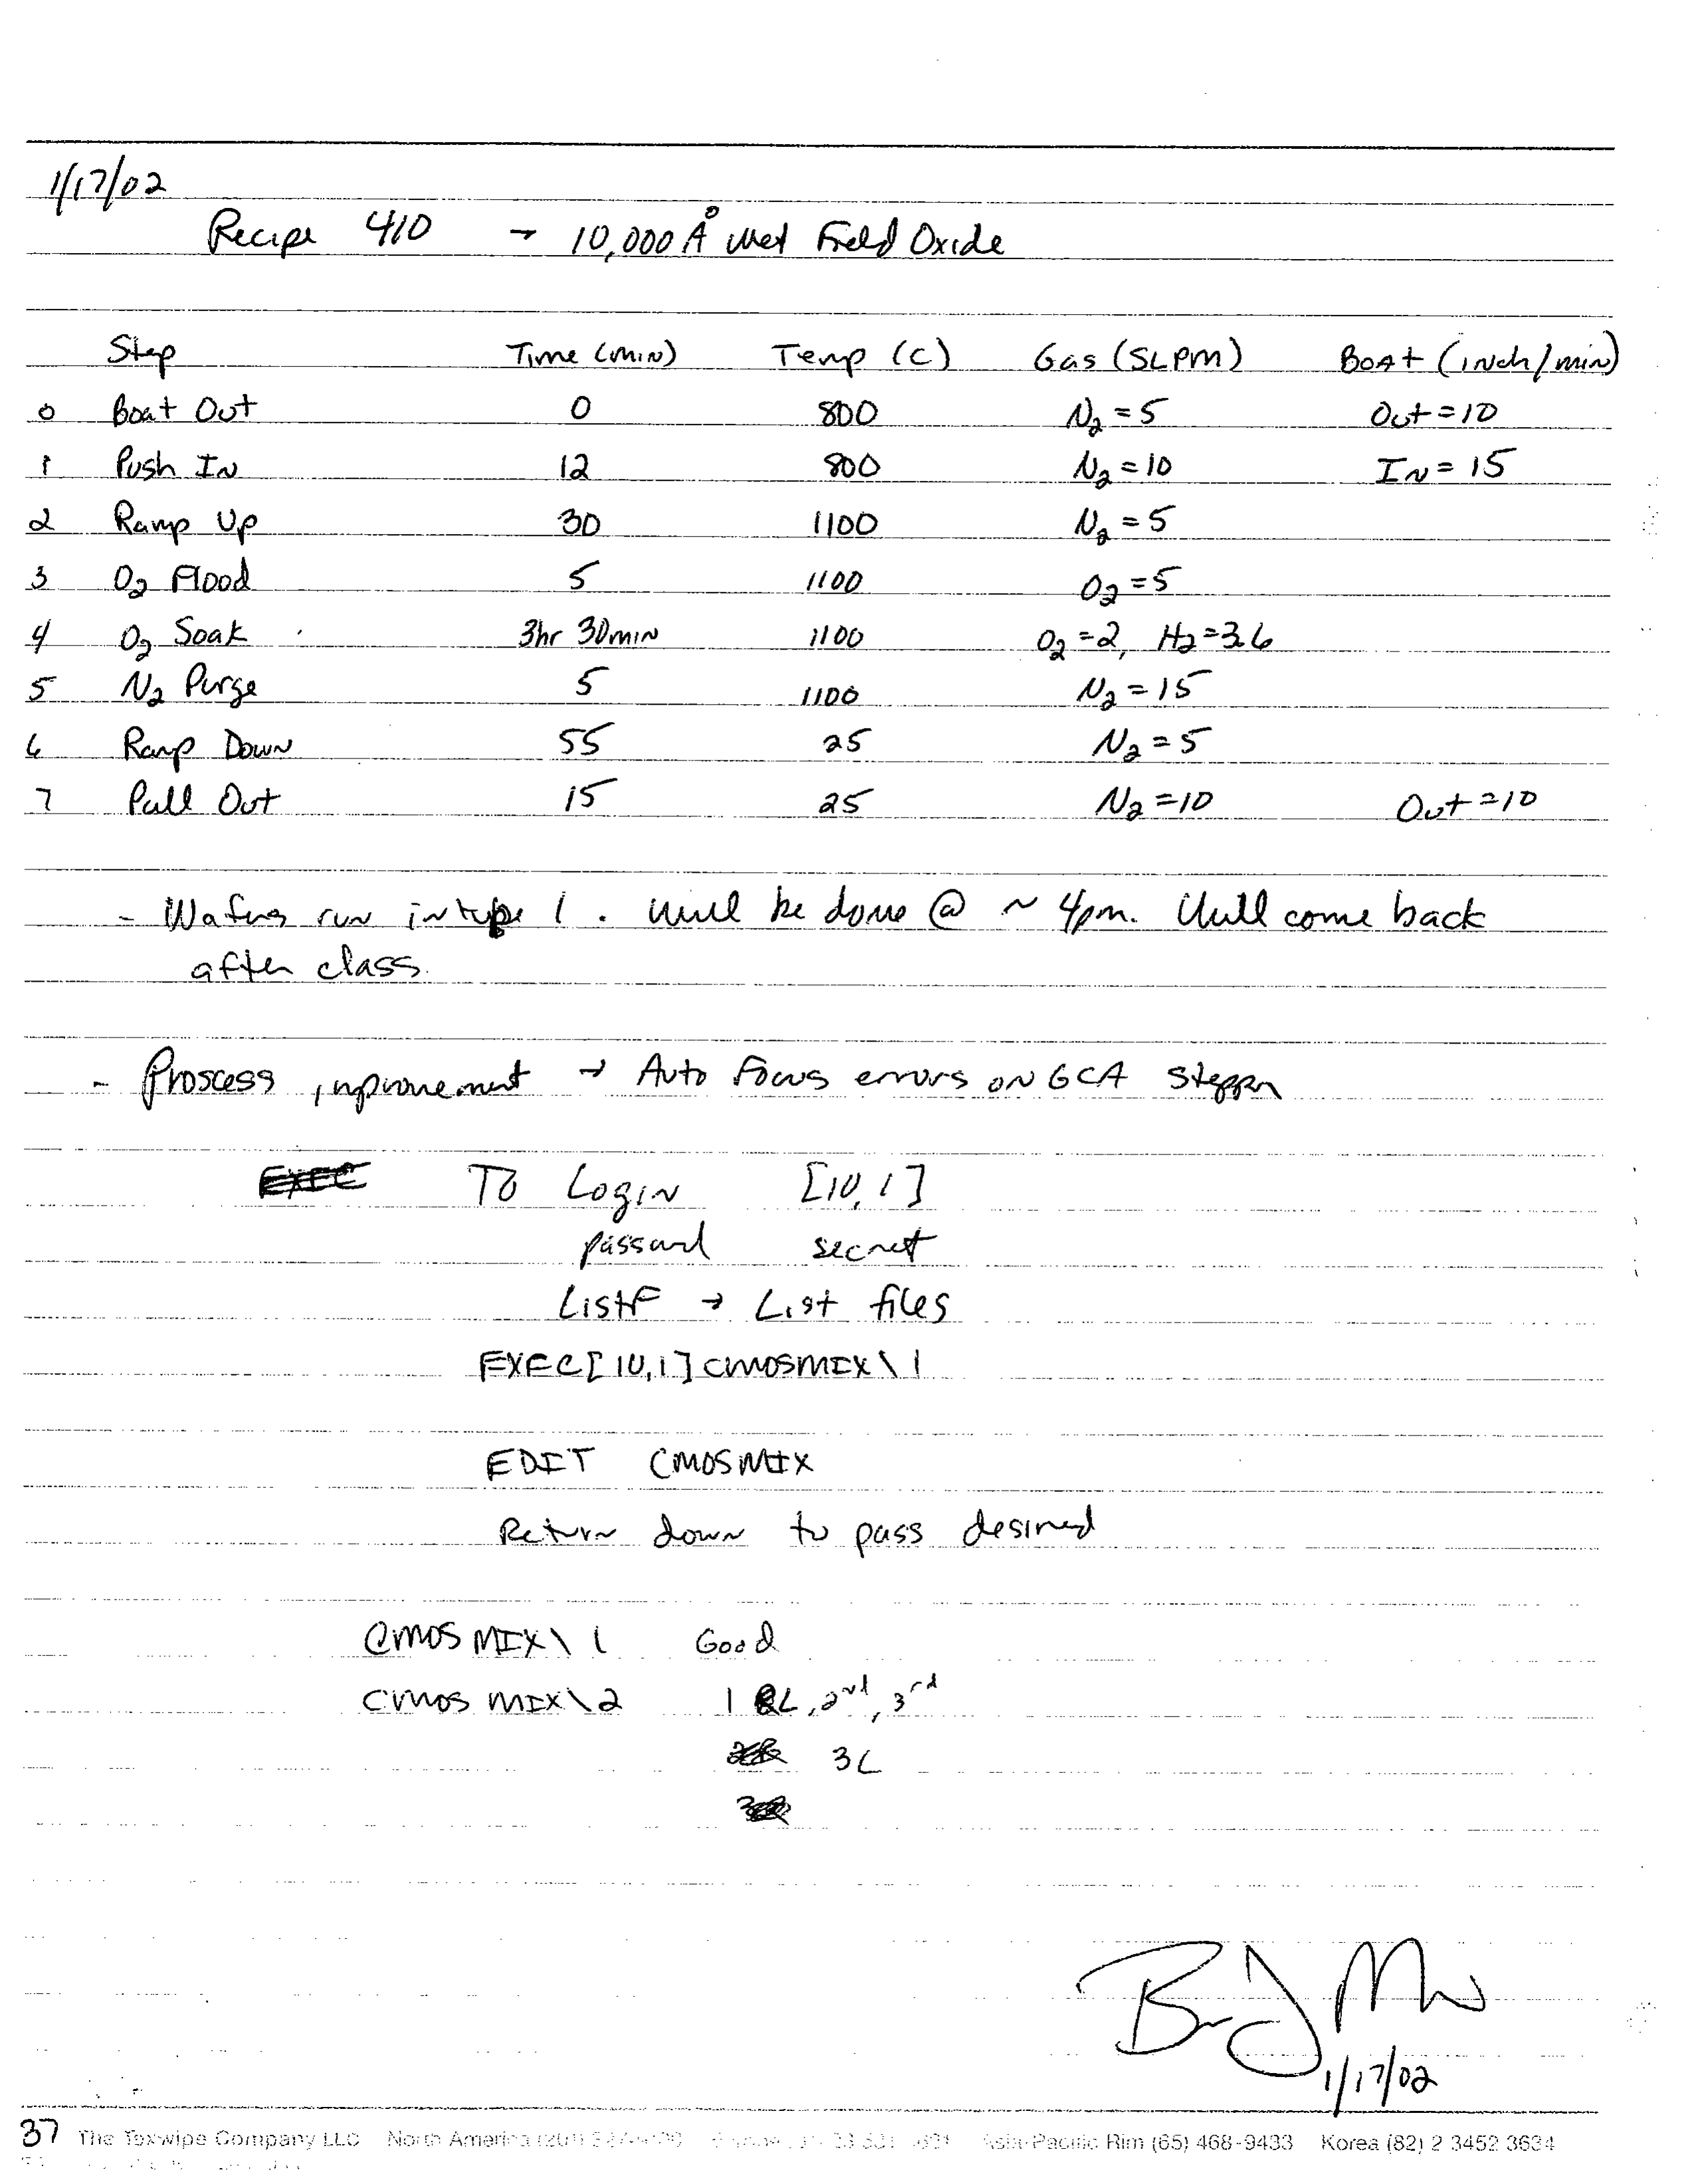 1/17/02
Recipe 410 → 10,000 Å Wet Field Oxide
Step Time (min) Temp (C) Gas (SLPM) Boat (inch/min)
0 Boat Out 0 800 N2 = 5 Out = 10
1 Push In 12 800 N2 = 10 In = 15
2 Ramp Up 30 1100 N2 = 5
3 O2 Flood 5 1100 O2 = 5
4 O2 Soak 3hr 30min 1100 O2 = 2, H2 = 3.6
5 N2 Purge 5 1100 N2 = 15
6 Ramp Down 55 25 N2 = 5
7 Pull Out 15 25 N2 = 10 Out = 10
- Wafers run in tube 1. Will be done @ ~ 4pm. Will come back
after class.
- Proscess improvement → Auto Focus errors on GCA Stepper
EXEC To Login [10,1]
password secret
ListF → List files
EXEC[10,1]CMOSMIX\1
EDIT CMOSMIX
Return down to pass desired
CMOSMIX\1 Good
CMOSMIX\2 1 L, 2nd, 3rd
3L
1/17/02
37 The Texwipe Company LLC North America Asia-Pacific Rim (65) 468-9433 Korea (82) 2 3452 3634